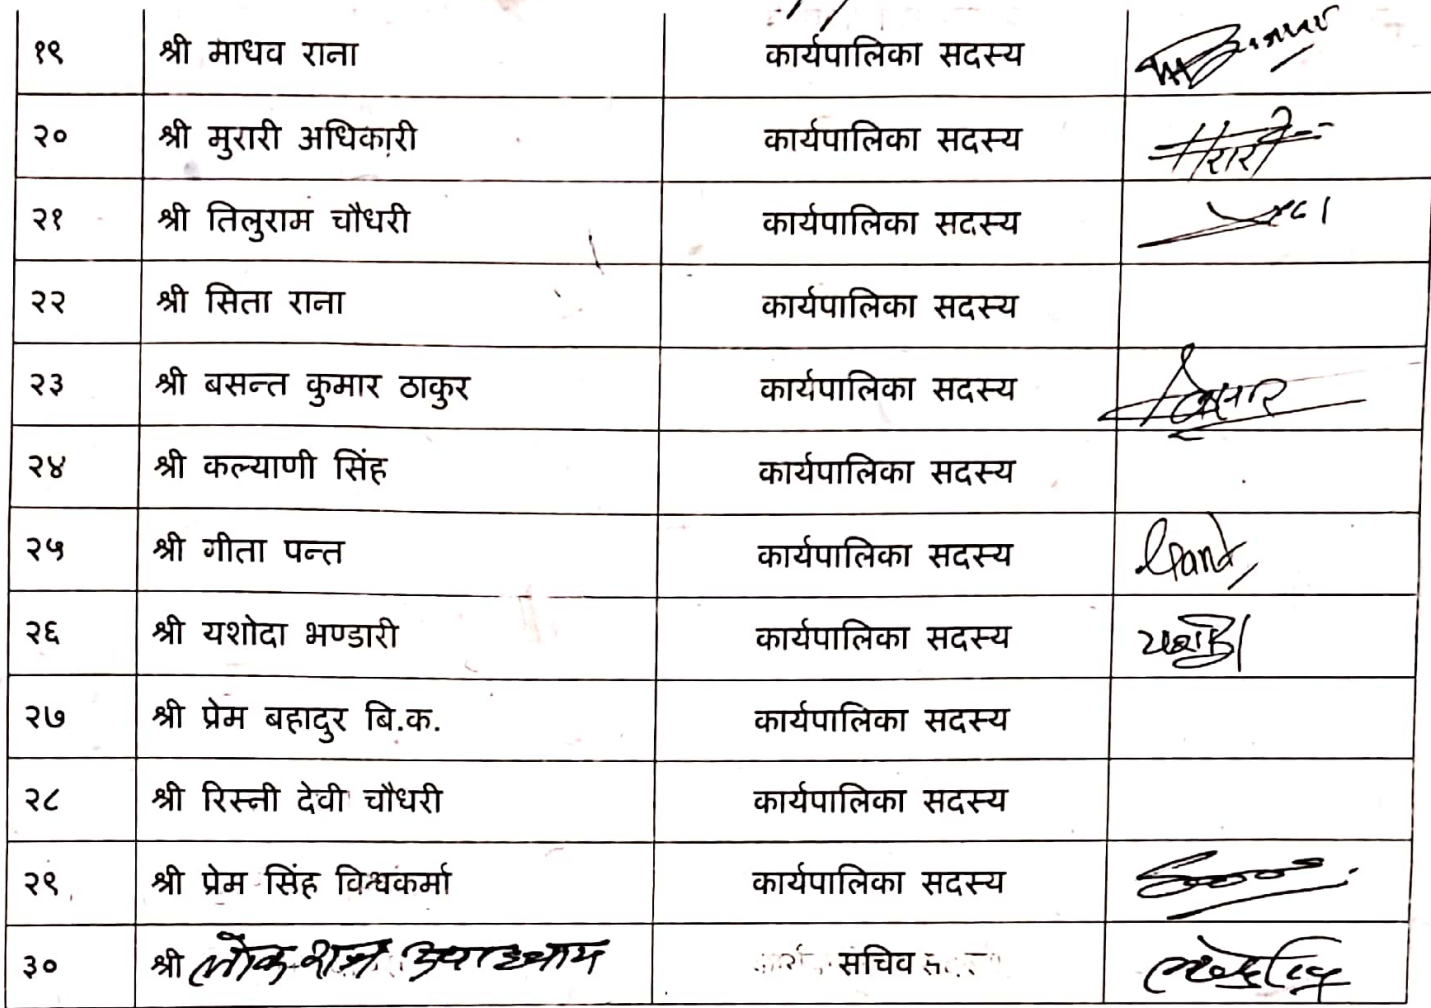 १९ श्री माधव राना कार्यपालिका सदस्य
२० श्री मुरारी अधिकारी कार्यपालिका सदस्य
२१ श्री तिलुराम चौधरी कार्यपालिका सदस्य
२२ श्री सिता राना कार्यपालिका सदस्य
२३ श्री बसन्त कुमार ठाकुर कार्यपालिका सदस्य
२४ श्री कल्याणी सिंह कार्यपालिका सदस्य
२५ श्री गीता पन्त कार्यपालिका सदस्य
२६ श्री यशोदा भण्डारी कार्यपालिका सदस्य
२७ श्री प्रेम बहादुर बि.क. कार्यपालिका सदस्य
२८ श्री रिस्नी देवी चौधरी कार्यपालिका सदस्य
२९ श्री प्रेम सिंह विश्वकर्मा कार्यपालिका सदस्य
३० श्री लोक राज उपाध्याय सचिव